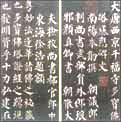 大唐西京千福寺多寶佛
塔感應碑文
南陽岑勛撰 朝議郎
判尚書武部員外郎琅
邪顏真卿書 朝散
大夫檢校尚書都官郎中
東海徐浩題額
粵妙法蓮華諸佛之秘藏
也多寶佛塔證經之踊現
也發明資乎十力弘建在